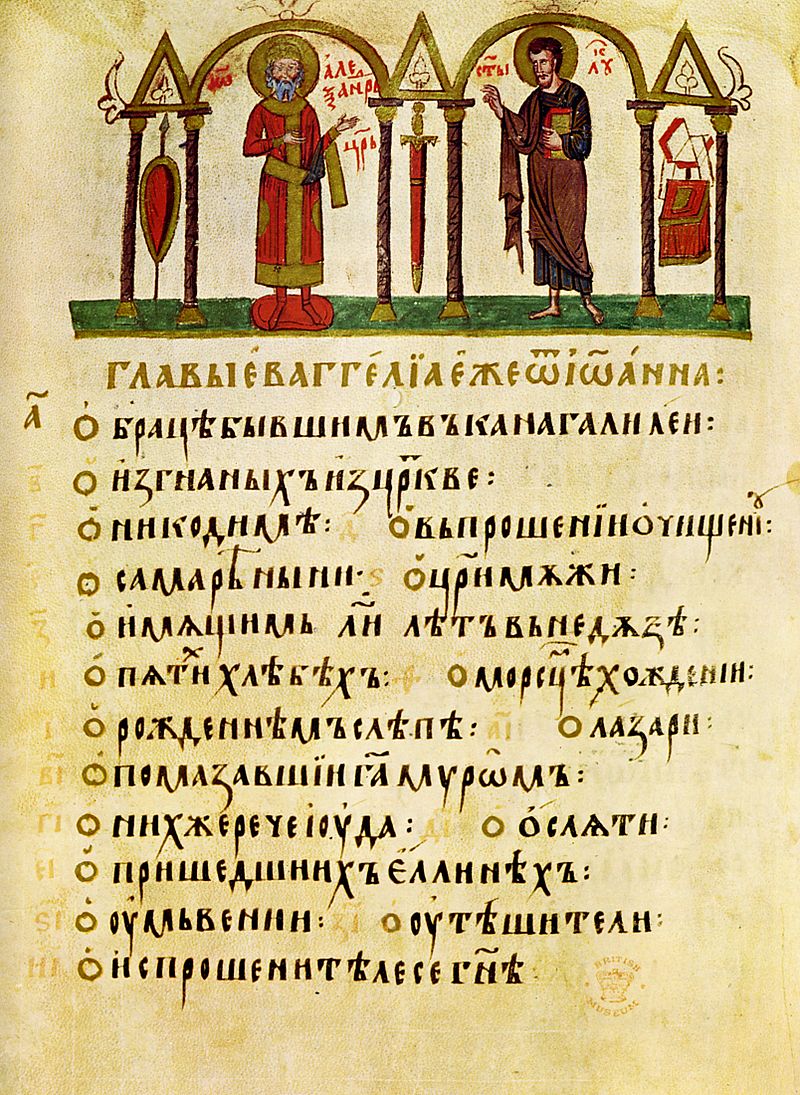 їѡ҃ алеѯандръ црь
ст҃ы їс҃ лꙋ
главы е҆ваггелїа е҆же ѿ і҆ѡа́нна:
а҃ ѻ҆ брацѣ бывшимъ въ кана галилеи:
ѻ҆ изгнаныхъ из цр҃кве:
г҃ ѻ҆ никодимѣ: д҃ ѻ҆ въпрошенїи ѻ҆чищени:
ѻ҆ самарѣныни· ѕ҃ ѻ҆ цр҃и мѫжи:
з҃ ѻ҆ имѧщимь л҃и лѣтъ вь недѫзѣ:
и҃ ѻ҆ пѧтих хлѣбѣхъ: ѳ҃ ѻ҆ морсцѣ хождении:
і҃ ѻ҆ рожденнѣмъ слѣпѣ: а҃і ѻ҆ лазари:
в҃і ѻ҆ помазавшїи г҃а мѵрѡмъ:
г҃і ѻ҆ них же рече іоуда: д҃і ѻ҆ ѻ҆слѧти:
е҃і ѻ҆ пришедших ъ е҆ллинѣхъ:
ѕ҃і ѻ҆ оумъвении: з҃і ѻ҆ оутѣшители:
и҃і ѻ҆ испрошени тѣлесе гн҃ѣ
BRITISH MUSEUM